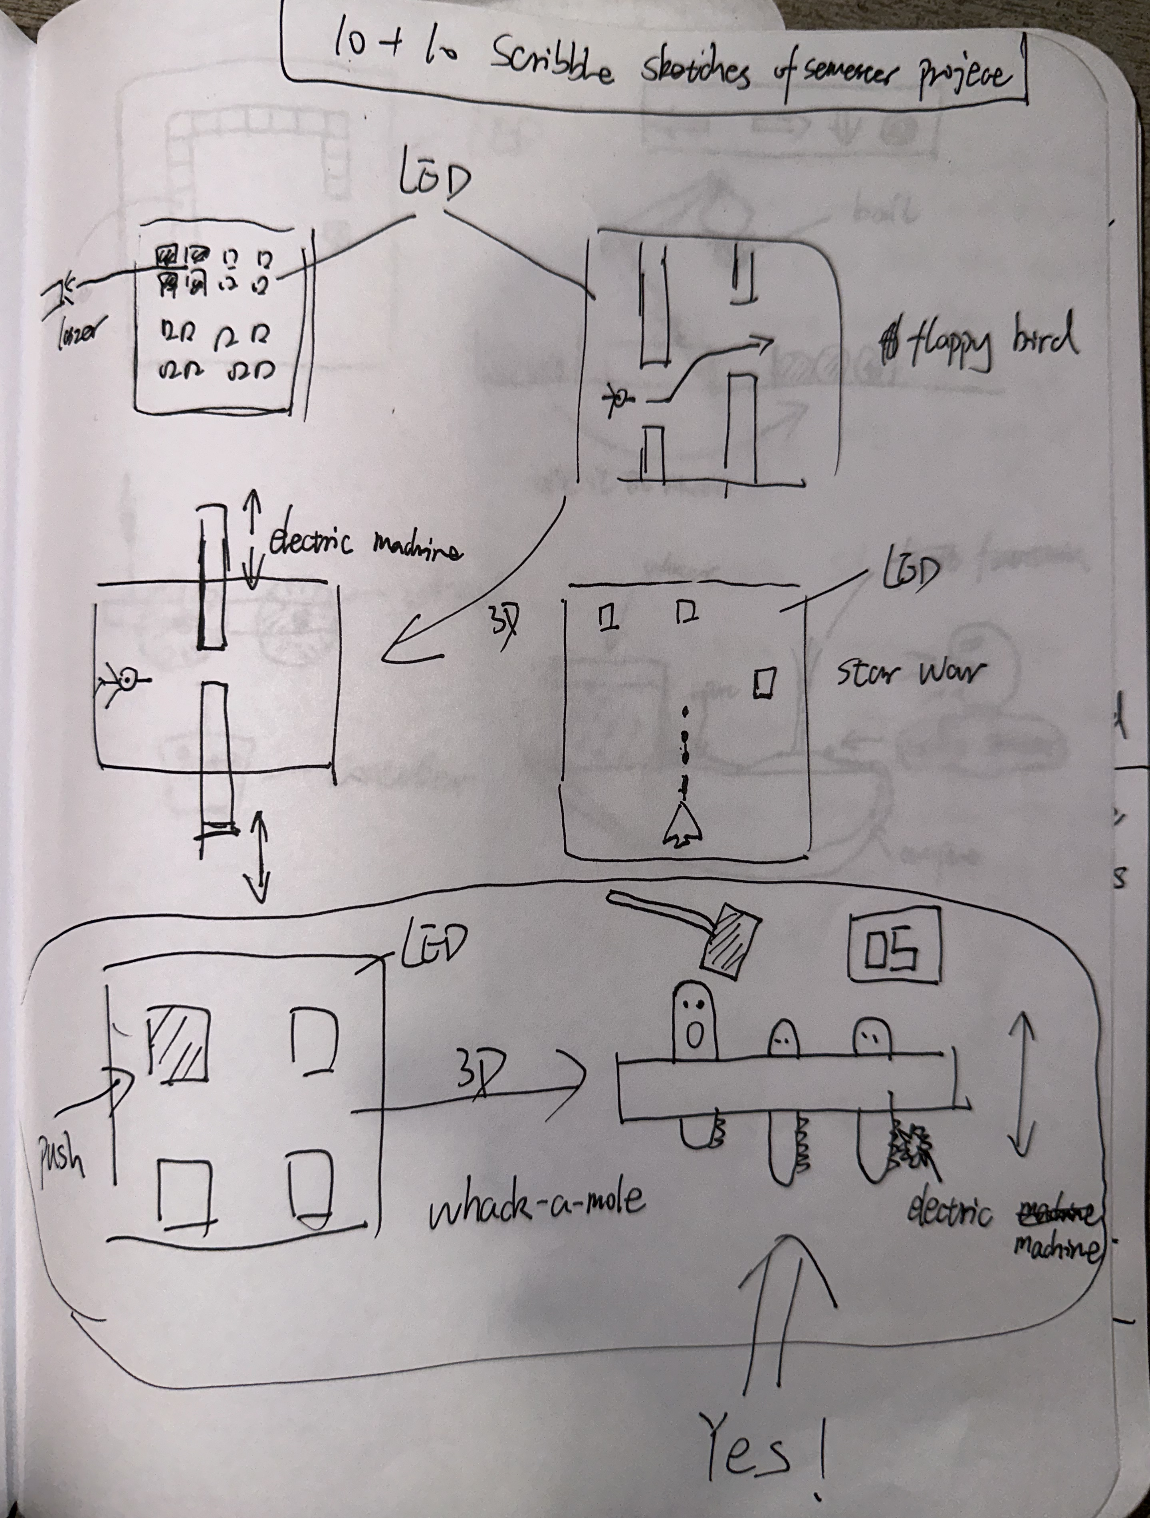 10 + 10 Scribble sketches of semester project
LED
lazer
flappy bird
electric machine
3D
LED
star war
LED
05
3D
push
whack-a-mole
electric
machine
Yes!